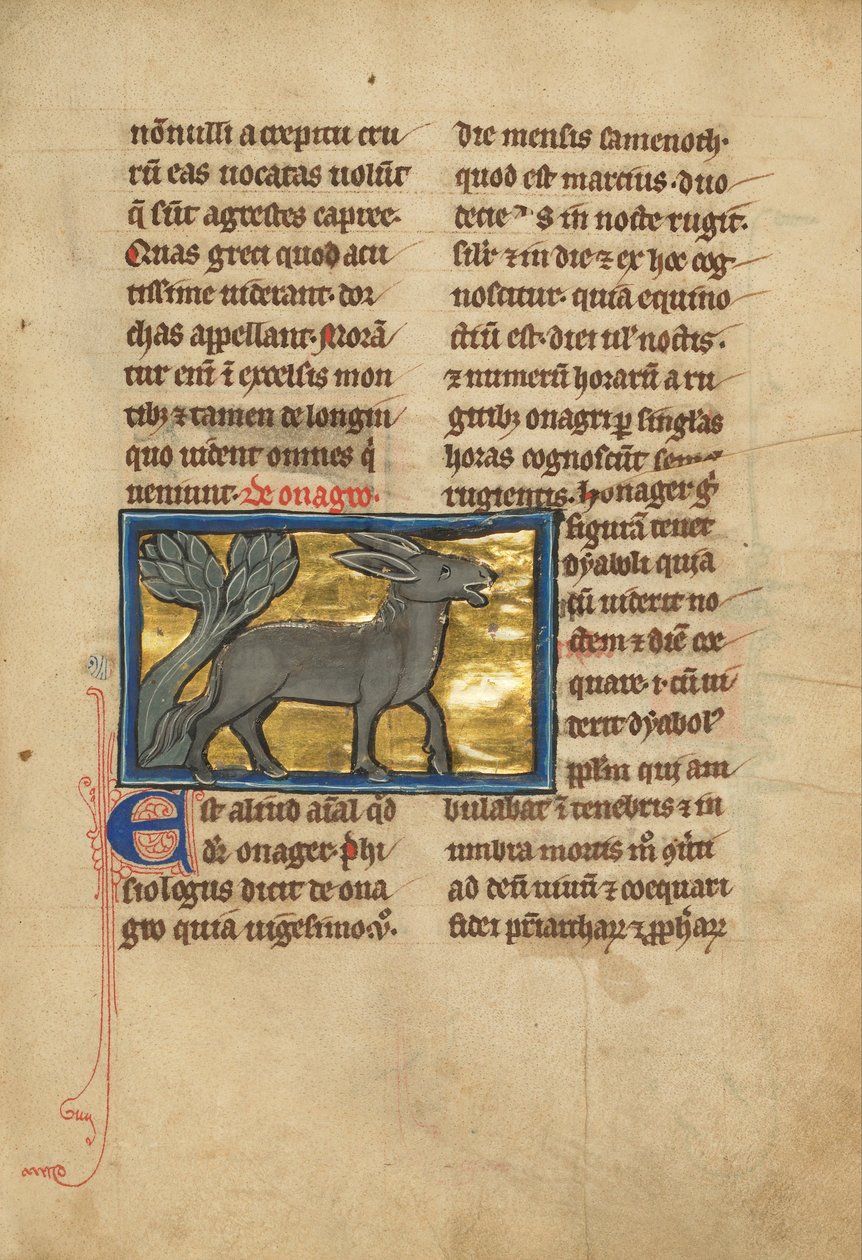 nōnulli a crepitu cru
rū eas uocatas uolūt
q̄ sūt agrestes capree.
Quas greci quod acu
tissime uiderant. dor
chas appellant. Morā
tur enī ī excelsis mon
tibꝫ ⁊ tamen de longin
quo uident omnes q̇
ueniunt. de onagro.
Est aliud aīal q̇d
dr̄ onager. phi
siologus dicit de ona
gro quia uigesimo .v̊.
die mensis famenoth.
quod est marcius. duo
decies in nocte rugit.
silr̄ ⁊ in die ⁊ ex hoc cog
noscitur. quia equino
ctiū est. diei ul̄ noctis.
⁊ numerū horarū a ru
gitibꝫ onagri ꝑ singl̄as
horas cognoscūt semel
rugientis. honager g̊
figurā tenet
dyaboli quia
cū uiderit no
ctem ⁊ diē coe
quare. i. cū ui
derit dyabolꝰ
pp̄lm qui am
bulabat ī tenebris ⁊ in
umbra mortis m̊ ꝯuͥti
ad deū uiuū ⁊ coequari
fidei pr̄iarcharꝝ ⁊ ꝓph̄arꝝ